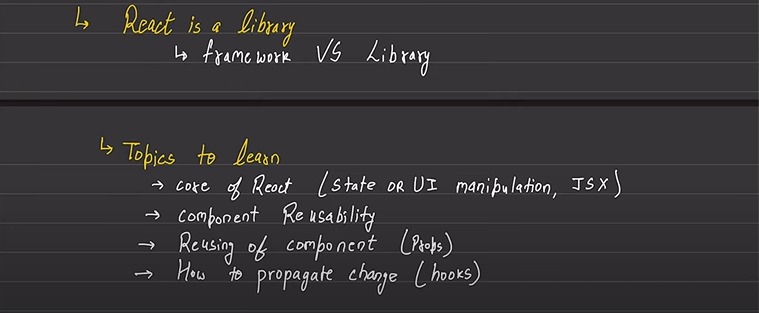 ↳ React is a library
↳ framework VS Library
↳ Topics to learn
→ core of React (state OR UI manipulation, JSX)
→ component Reusability
→ Reusing of component (Props)
→ How to propagate change (hooks)